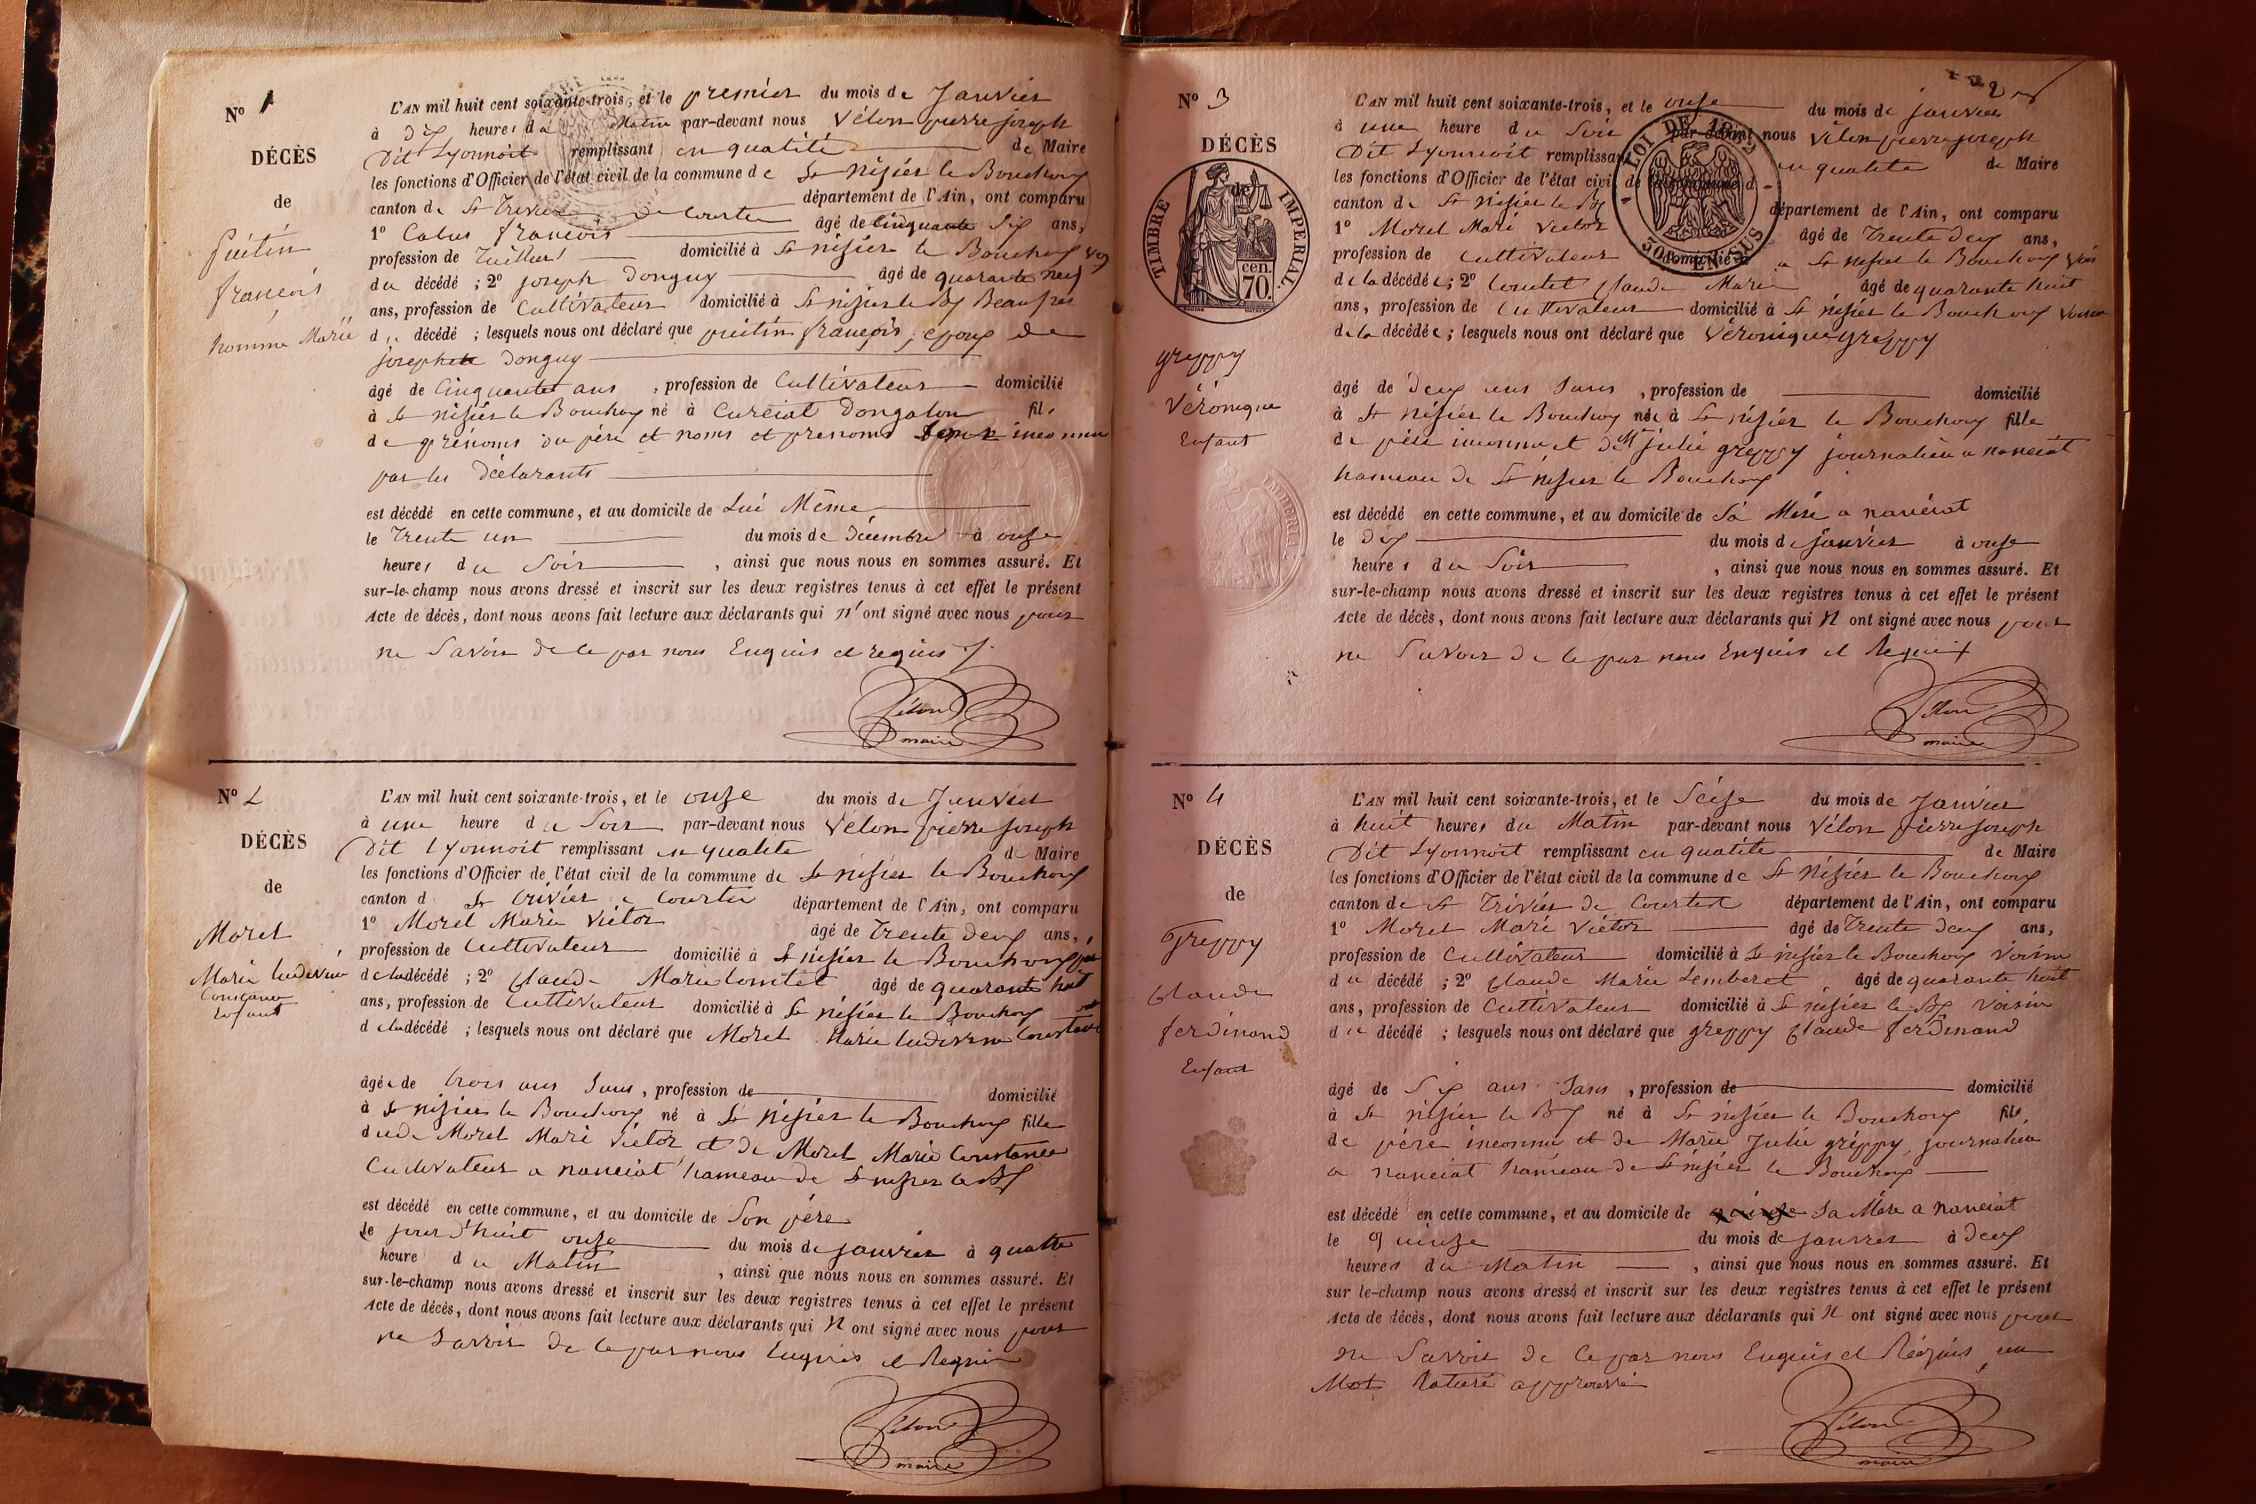 N° 1
DÉCÈS
de
Puitin
françois
homme Marié
L'AN mil huit cent soixante-trois, et le premier du mois de Janvier
à dix heures du Matin par-devant nous Vélon pierre joseph
Dit Lyonnoit remplissant en qualité de Maire
les fonctions d'Officier de l'état civil de la commune de St nisier le Bouchoux
canton de St Trivier de Courtes département de l'Ain, ont comparu
1° françois âgé de cinquante six ans,
profession de domicilié à St nisier le Bouchoux
du décédé ; 2° joseph Donguy âgé de quarante neuf
ans, profession de Cultivateur domicilié à St nisier le Bx
d décédé ; lesquels nous ont déclaré que puitin françois, époux de
Donguy
âgé de Cinquante ans, profession de Cultivateur domicilié
à St nisier le Bouchoux né à Curciat Dongalon fils
de prénoms du père et noms et prenoms inconnus
par les Déclarants
est décédé en cette commune, et au domicile de Lui Même
le Trente un du mois de Décembre à onze
heures du Soir, ainsi que nous nous en sommes assuré. Et
sur-le-champ nous avons dressé et inscrit sur les deux registres tenus à cet effet le présent
Acte de décès, dont nous avons fait lecture aux déclarants qui n'ont signé avec nous pour
ne Savoir de ce par nous Enquis et requis
Vélon
maire
N° 2
DÉCÈS
de
Morel
Marie
Constance
Enfant
L'AN mil huit cent soixante-trois, et le onze du mois de Janvier
à une heure du Soir par-devant nous Vélon pierre joseph
Dit Lyonnoit remplissant en qualité de Maire
les fonctions d'Officier de l'état civil de la commune de St nisier le Bouchoux
canton d St trivier Courtes département de l'Ain, ont comparu
1° Morel Marie Victor âgé de Trente Deux ans,
profession de Cultivateur domicilié à St nisier le Bouchoux père
de la décédé ; 2° Claude Marie âgé de quarante huit
ans, profession de Cultivateur domicilié à St nisier le Bouchoux
d décédé ; lesquels nous ont déclaré que Morel Marie
âgée de trois ans Sans, profession de domicilié
à St nisier le Bouchoux né à St nisier le Bouchoux fille
de Morel Marie Victor et de Morel Marie Constance
Cultivateur a nanciat hameau de St nisier le Bx
est décédé en cette commune, et au domicile de Son père
le jour d'huit onze du mois de janvier à quatre
heure du Matin, ainsi que nous nous en sommes assuré. Et
sur-le-champ nous avons dressé et inscrit sur les deux registres tenus à cet effet le présent
Acte de décès, dont nous avons fait lecture aux déclarants qui N ont signé avec nous pour
ne Savoir de ce par nous Enquis et Requis
Vélon
maire
2
N° 3
DÉCÈS
de
TIMBRE IMPERIAL
70 cen.
greppy
Véronique
Enfant
L'AN mil huit cent soixante-trois, et le onze du mois de janvier
à une heure du Soir par-devant nous Vélon pierre joseph
Dit Lyonnoit remplissant en qualité de Maire
les fonctions d'Officier de l'état civil de la commune d
canton de St nisier le Bx département de l'Ain, ont comparu
LOI DE
50 EN SUS
1° Morel Marie Victor âgé de Trente deux ans,
profession de Cultivateur domicilié à St nisier le Bouchoux
de la décédée ; 2° Claude Marie âgé de quarante huit
ans, profession de Cultivateur domicilié à St nisier le Bouchoux voisin
de la décédée ; lesquels nous ont déclaré que Véronique greppy
âgé de deux ans Sans, profession de domicilié
à St nisier le Bouchoux née à St nisier le Bouchoux fille
de père inconnu et de Mie julie greppy journalière a nanciat
hameau de St nisier le Bouchoux
est décédé en cette commune, et au domicile de Sa Mère a nanciat
le dix du mois de janvier à onze
heures du Soir, ainsi que nous nous en sommes assuré. Et
sur-le-champ nous avons dressé et inscrit sur les deux registres tenus à cet effet le présent
Acte de décès, dont nous avons fait lecture aux déclarants qui N ont signé avec nous pour
ne Savoir de ce par nous Enquis et Requis
Vélon
maire
N° 4
DÉCÈS
de
Greppy
Claude
ferdinand
Enfant
L'AN mil huit cent soixante-trois, et le Seize du mois de Janvier
à huit heures du Matin par-devant nous Vélon pierre joseph
Dit Lyonnoit remplissant en qualité de Maire
les fonctions d'Officier de l'état civil de la commune de St Nisier le Bouchoux
canton de St Trivier de Courtes département de l'Ain, ont comparu
1° Morel Marie Victor âgé de Trente deux ans,
profession de Cultivateur domicilié à St nisier le Bouchoux Voisin
du décédé ; 2° Claude Marie âgé de quarante huit
ans, profession de Cultivateur domicilié à St nisier le Bx Voisin
du décédé ; lesquels nous ont déclaré que greppy Claude ferdinand
âgé de Six ans Sans, profession de domicilié
à St nisier le Bx né à St nisier le Bouchoux fils
de père inconnu et de Marie Julie gréppy, journalière
a nanciat hameau de St nisier le Bouchoux
est décédé en cette commune, et au domicile de quinze Sa Mère a nanciat
le quinze du mois de janvier à Deux
heures du Matin, ainsi que nous nous en sommes assuré. Et
sur le-champ nous avons dressé et inscrit sur les deux registres tenus à cet effet le présent
Acte de décès, dont nous avons fait lecture aux déclarants qui N ont signé avec nous pour
ne Savoir de ce par nous Enquis et Réquis, un
Mot Raturé approuvé
Vélon
maire